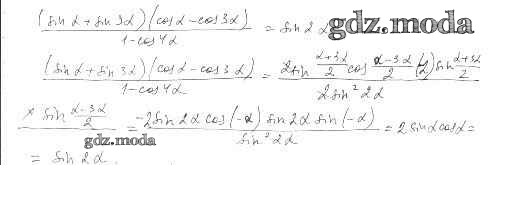 (sin α + sin 3α)(cos α − cos 3α) / 1 − cos 4α = sin 2α gdz.moda
(sin α + sin 3α)(cos α − cos 3α) / 1 − cos 4α = 2 sin (α+3α)/2 cos (α−3α)/2 (-2) sin (α+3α)/2 / 2 sin² 2α
× sin (α−3α)/2 = −2 sin 2α cos(−α) sin 2α sin(−α) / sin² 2α = 2 sin α cos α =
gdz.moda
= sin 2α.